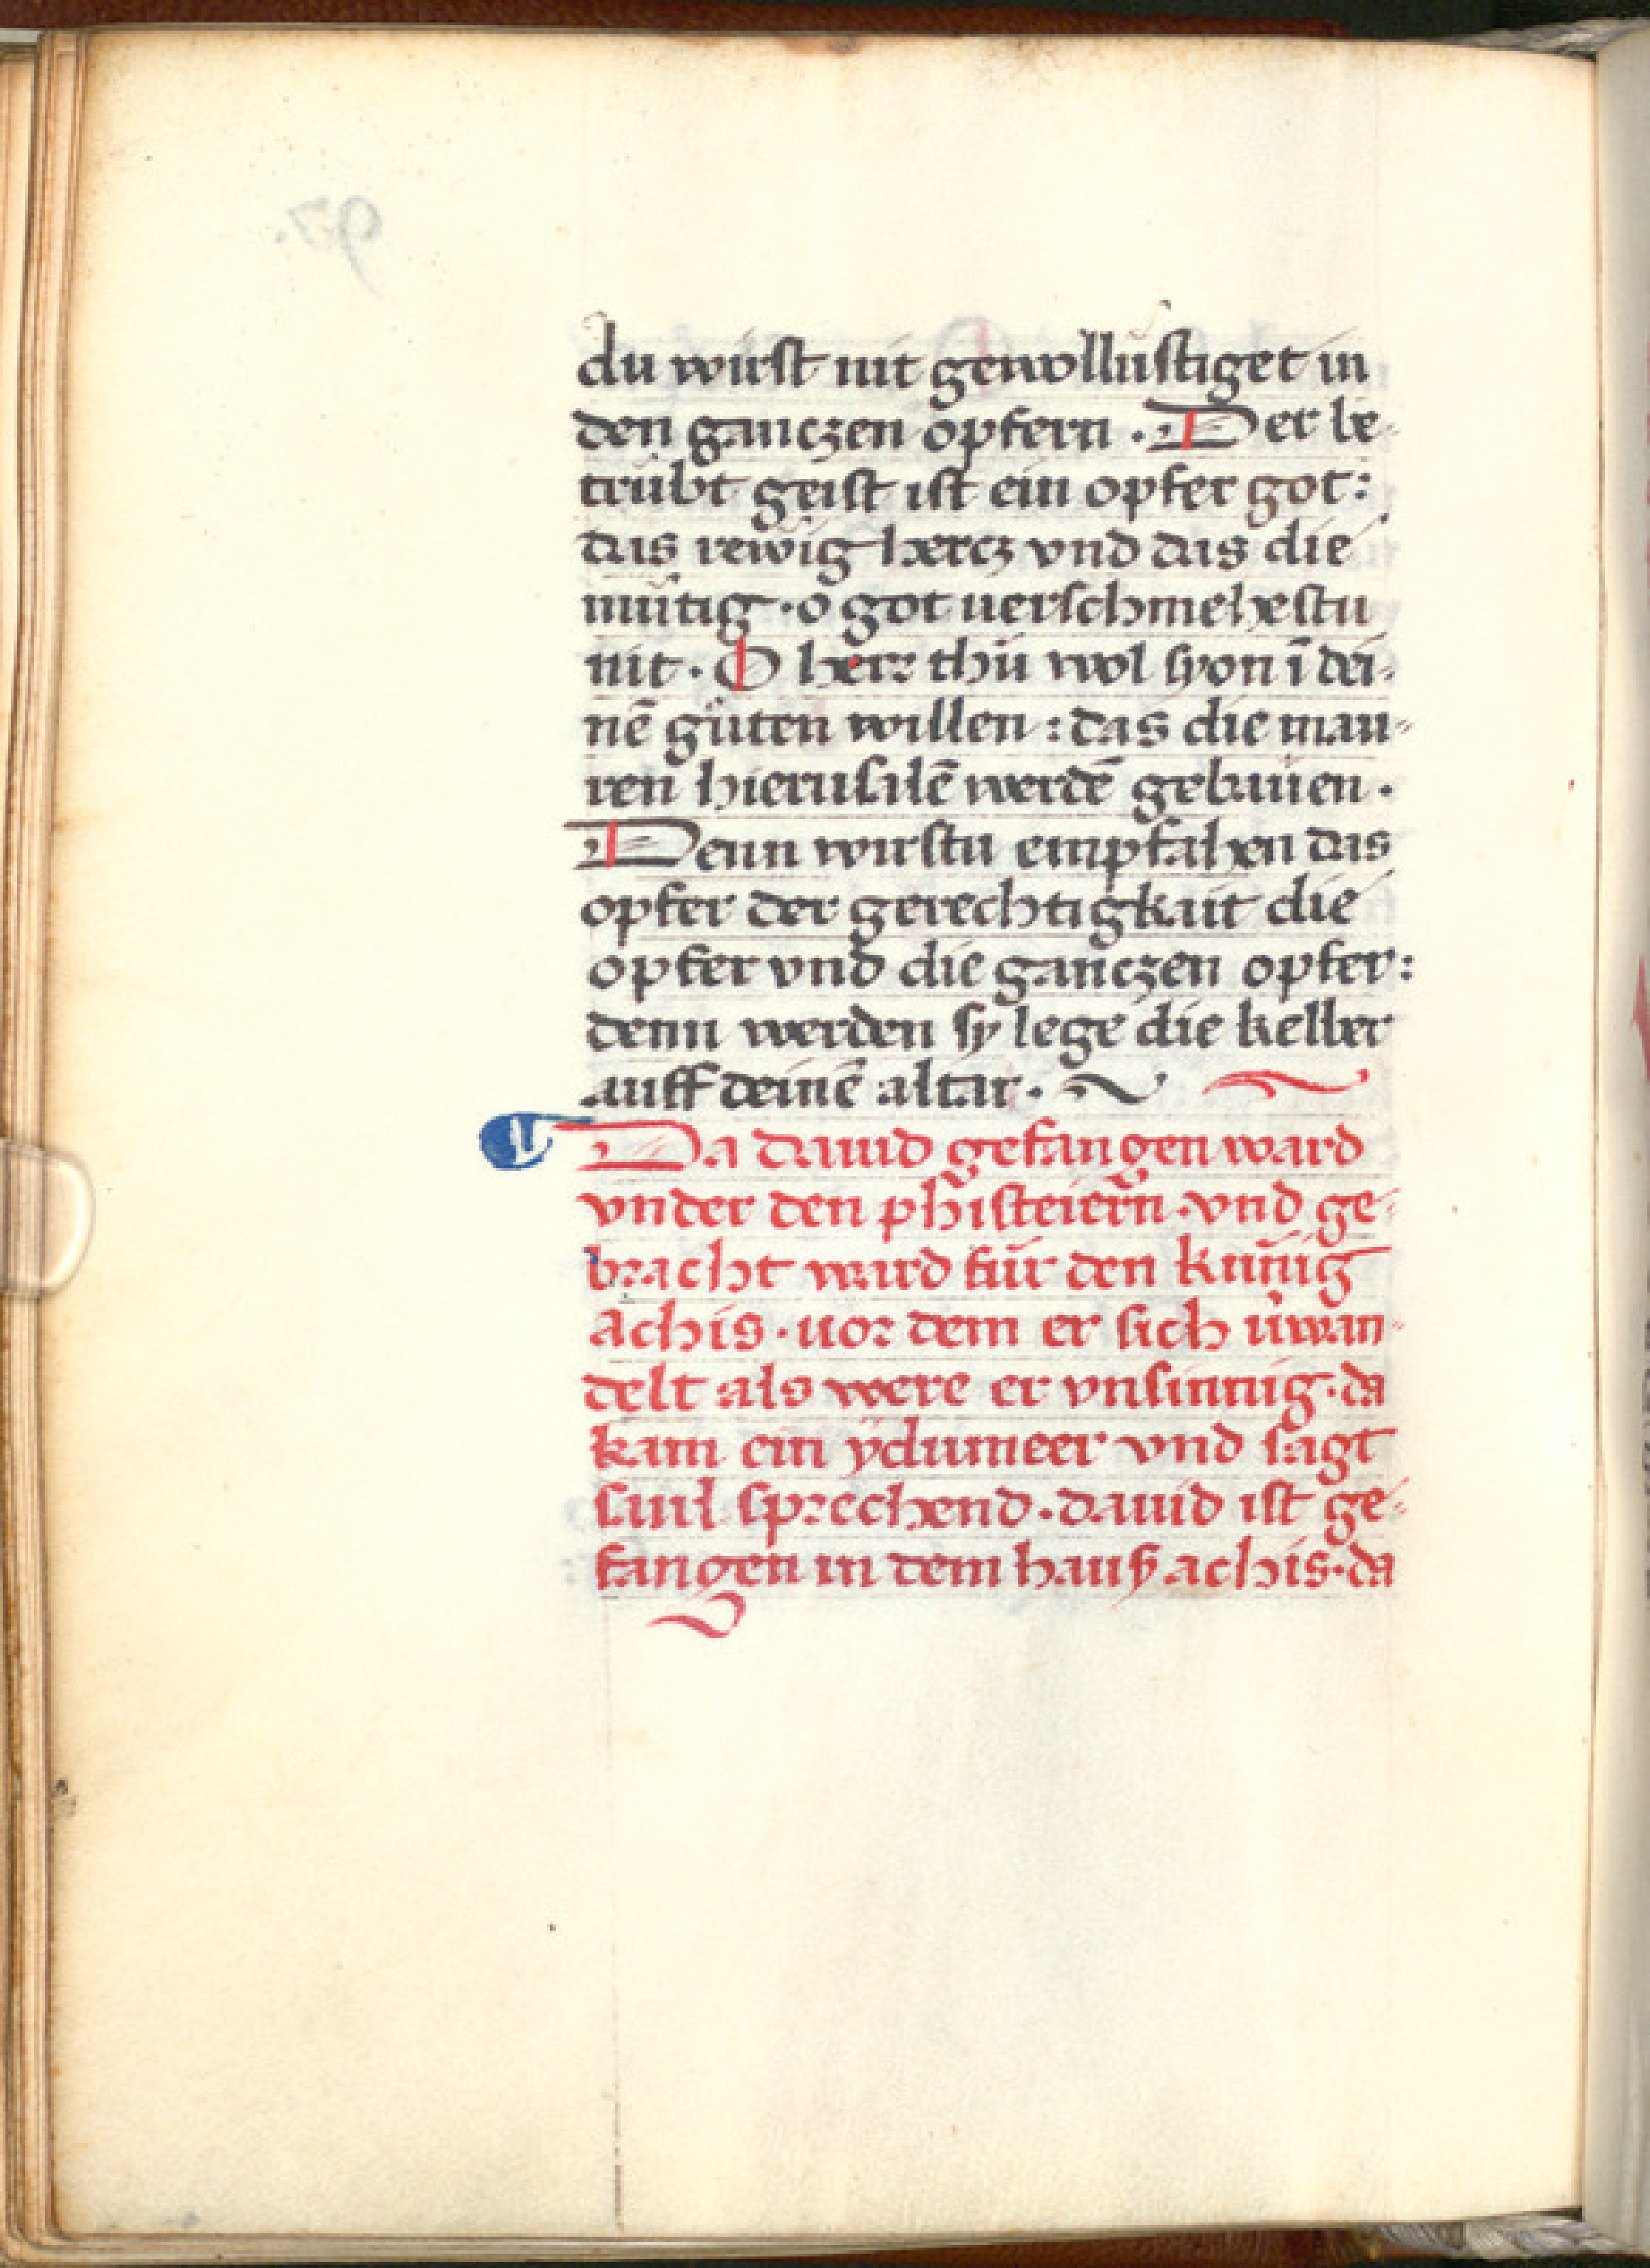 du wirst nit gewollustiget in
den ganczen opfern · Der be-
trübt geist ist ein opfer got:
das rewig hercz vnd das die
mütig · o got verschmehestu
nit · O herr thü wol syon ī dei-
nē güten willen : das die mau-
ren hierusalē werdē gebauen ·
Denn wirstu empfahen das
opfer der gerechtigkait die
opfer vnd die ganczen opfer:
denn werden sy legē die kelber
auff deinē altar ·
Da dauid gefangen ward
vnder den phisteiern · vnd ge-
bracht ward für den künig
achis · vor dem er sich v̉wan-
delt als were er vnsinnig · da
kam ein ydumeer vnd sagt
saul sprechend · dauid ist ge-
fangen in dem hauß achis · da